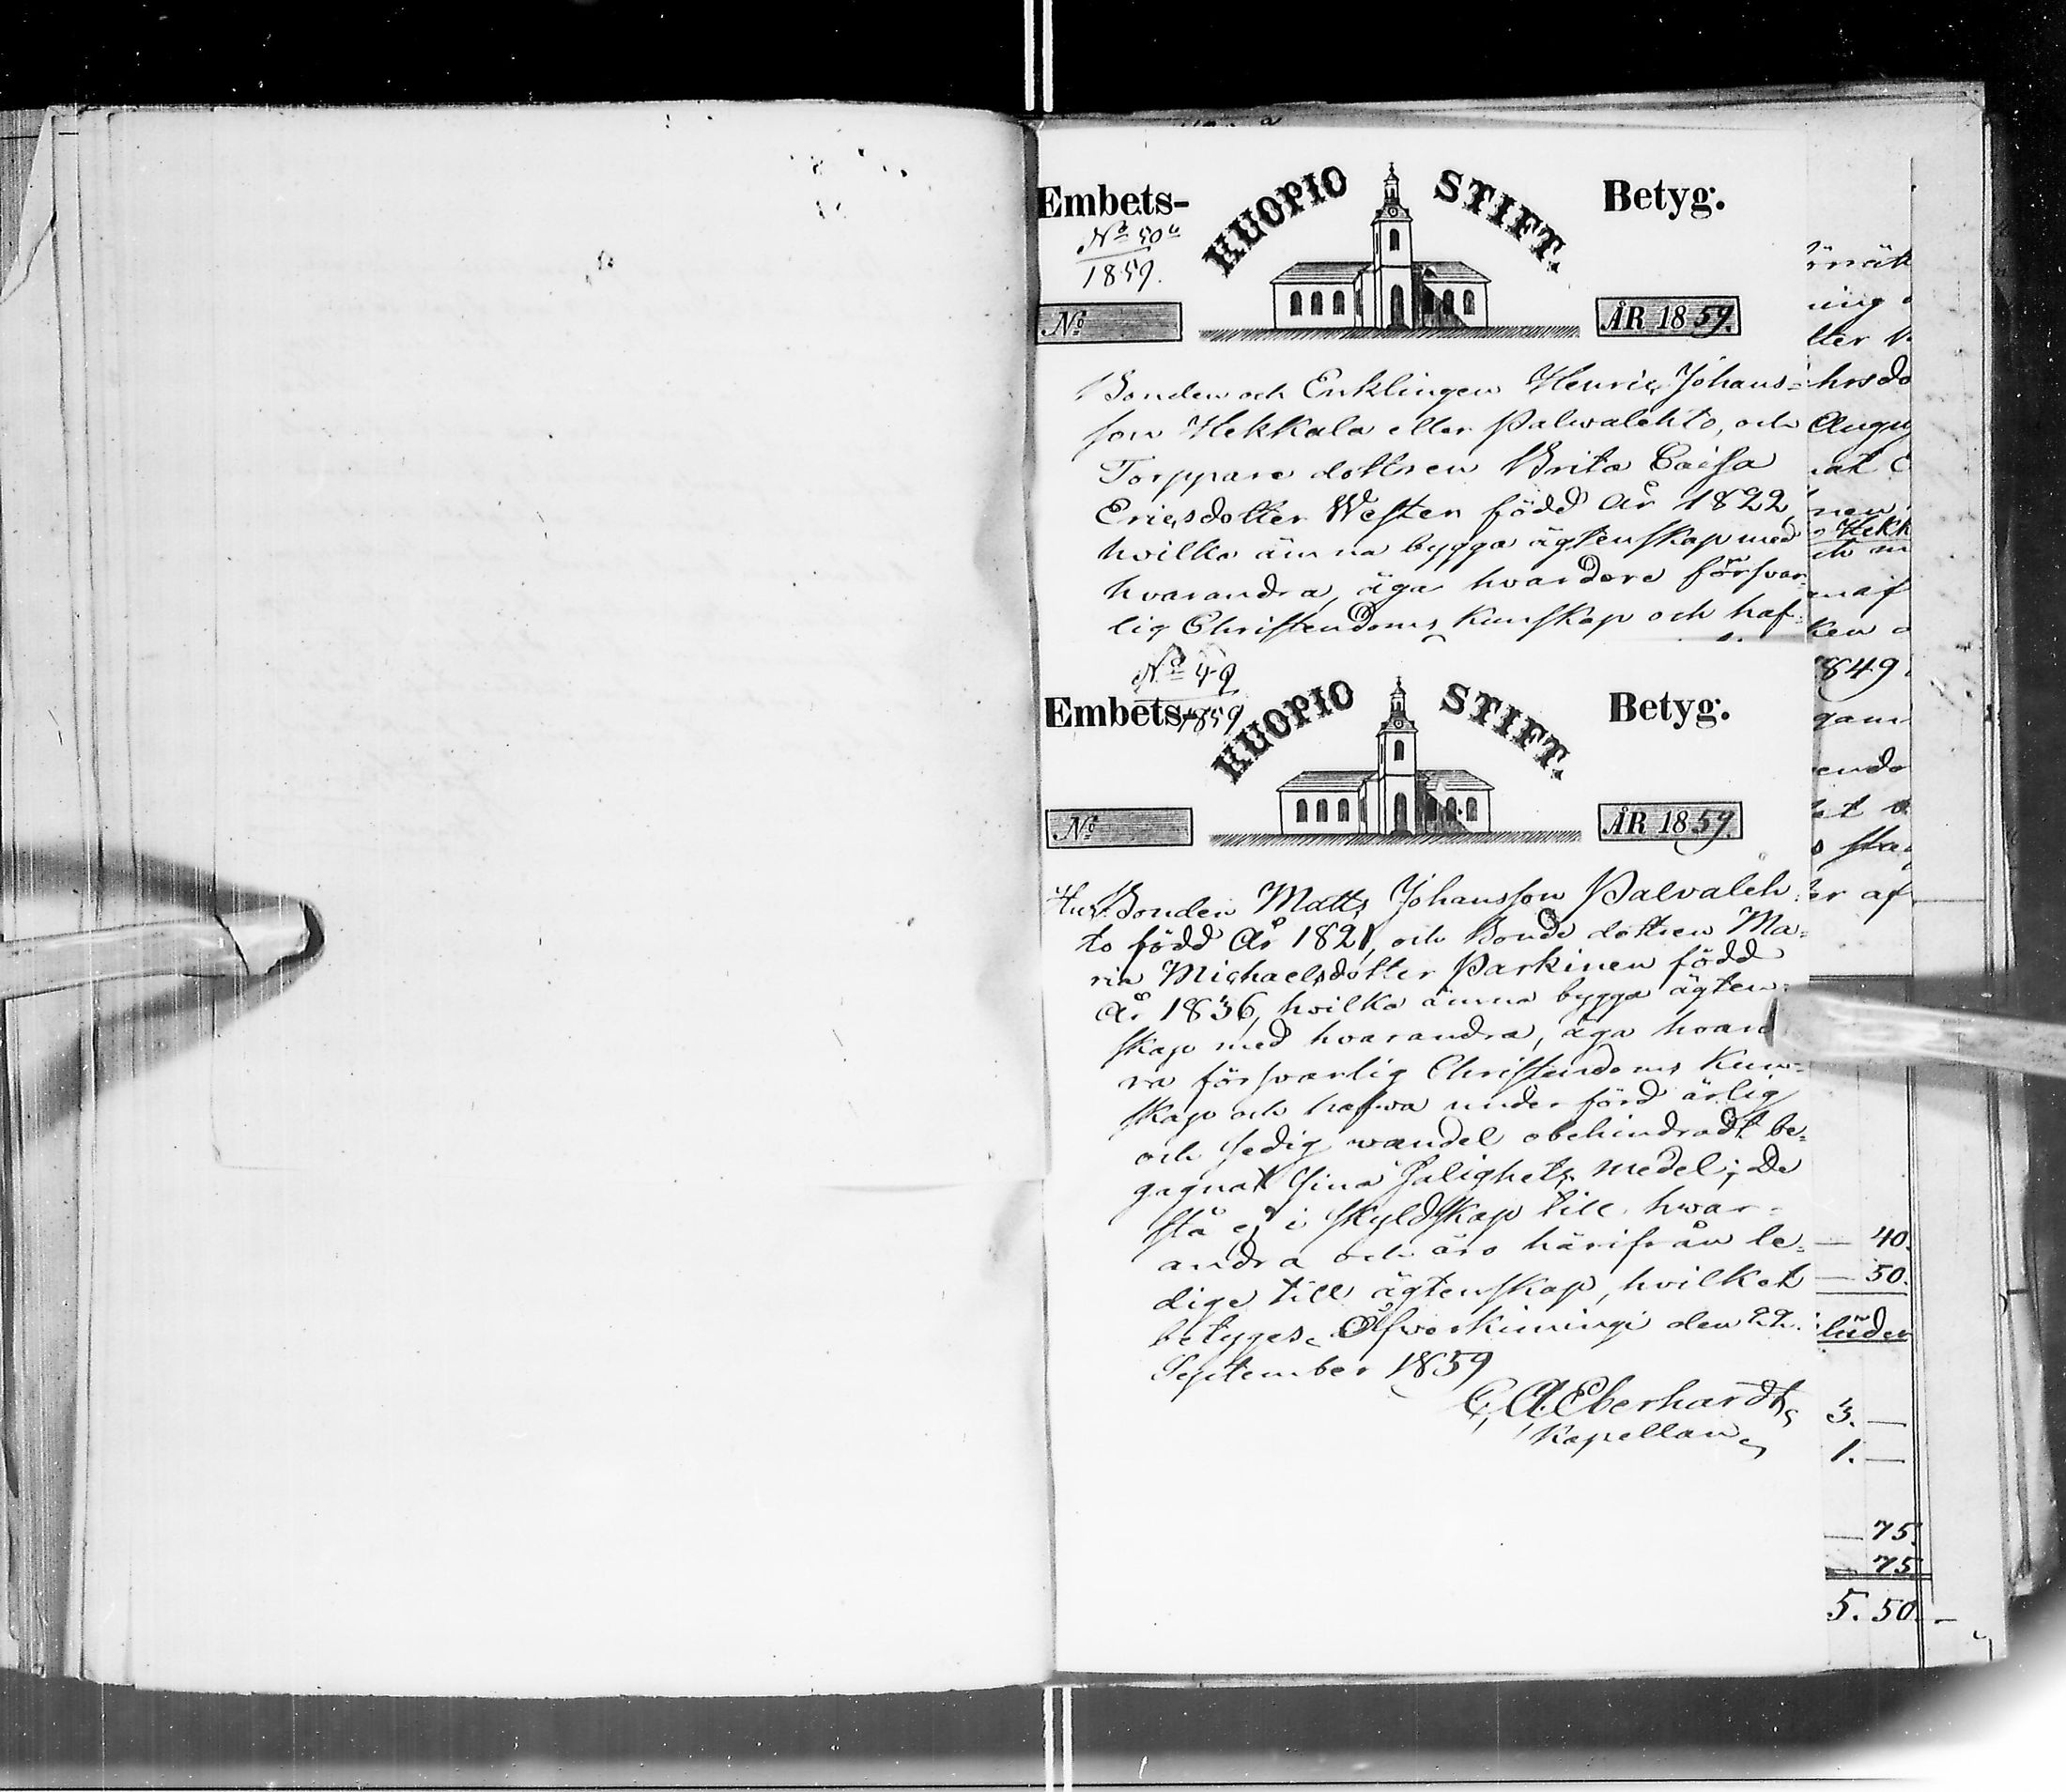 Embets- HUOPIO STIFT. Betyg.
No 50
1859.
No ÅR 1859.
Bonden och Enklingen Henric Johans=
son Hekkala eller Palwalehto, och
Torppare dottren Brita Caisa
Ericsdotter Westen född År 1822,
hvilka ämna bygga ägtenskap med
hvarandra, äga hvardera försvar=
lig Christendoms kunskap och haf=
No 49
1859
Embets- HUOPIO STIFT. Betyg.
No ÅR 1859.
Bonden Matts Johansson Palvaleh=
to född År 1821, och Bonde dottren Ma=
ria Michaelsdotter Parkinen född
År 1836, hvilka ämna bygga ägten=
skap med hvarandra, äga hvard
ra försvarlig Christendoms kun=
skap och hafwa under förd ärlig
och sedig wandel obehindradt be=
gagnat sina salighets medel; De
stå ej i skyldskap till hwar=
andra och äro härifrån le=
dige till ägtenskap, hvilket
betygas. Öfwerkiminge den 22
September 1859
C. A. Eberhardt,
Kapellan
hrsdo
Augu
Hekk
1849
ken
er af
40.
50.
3. —
1. —
75.
75.
5. 50.